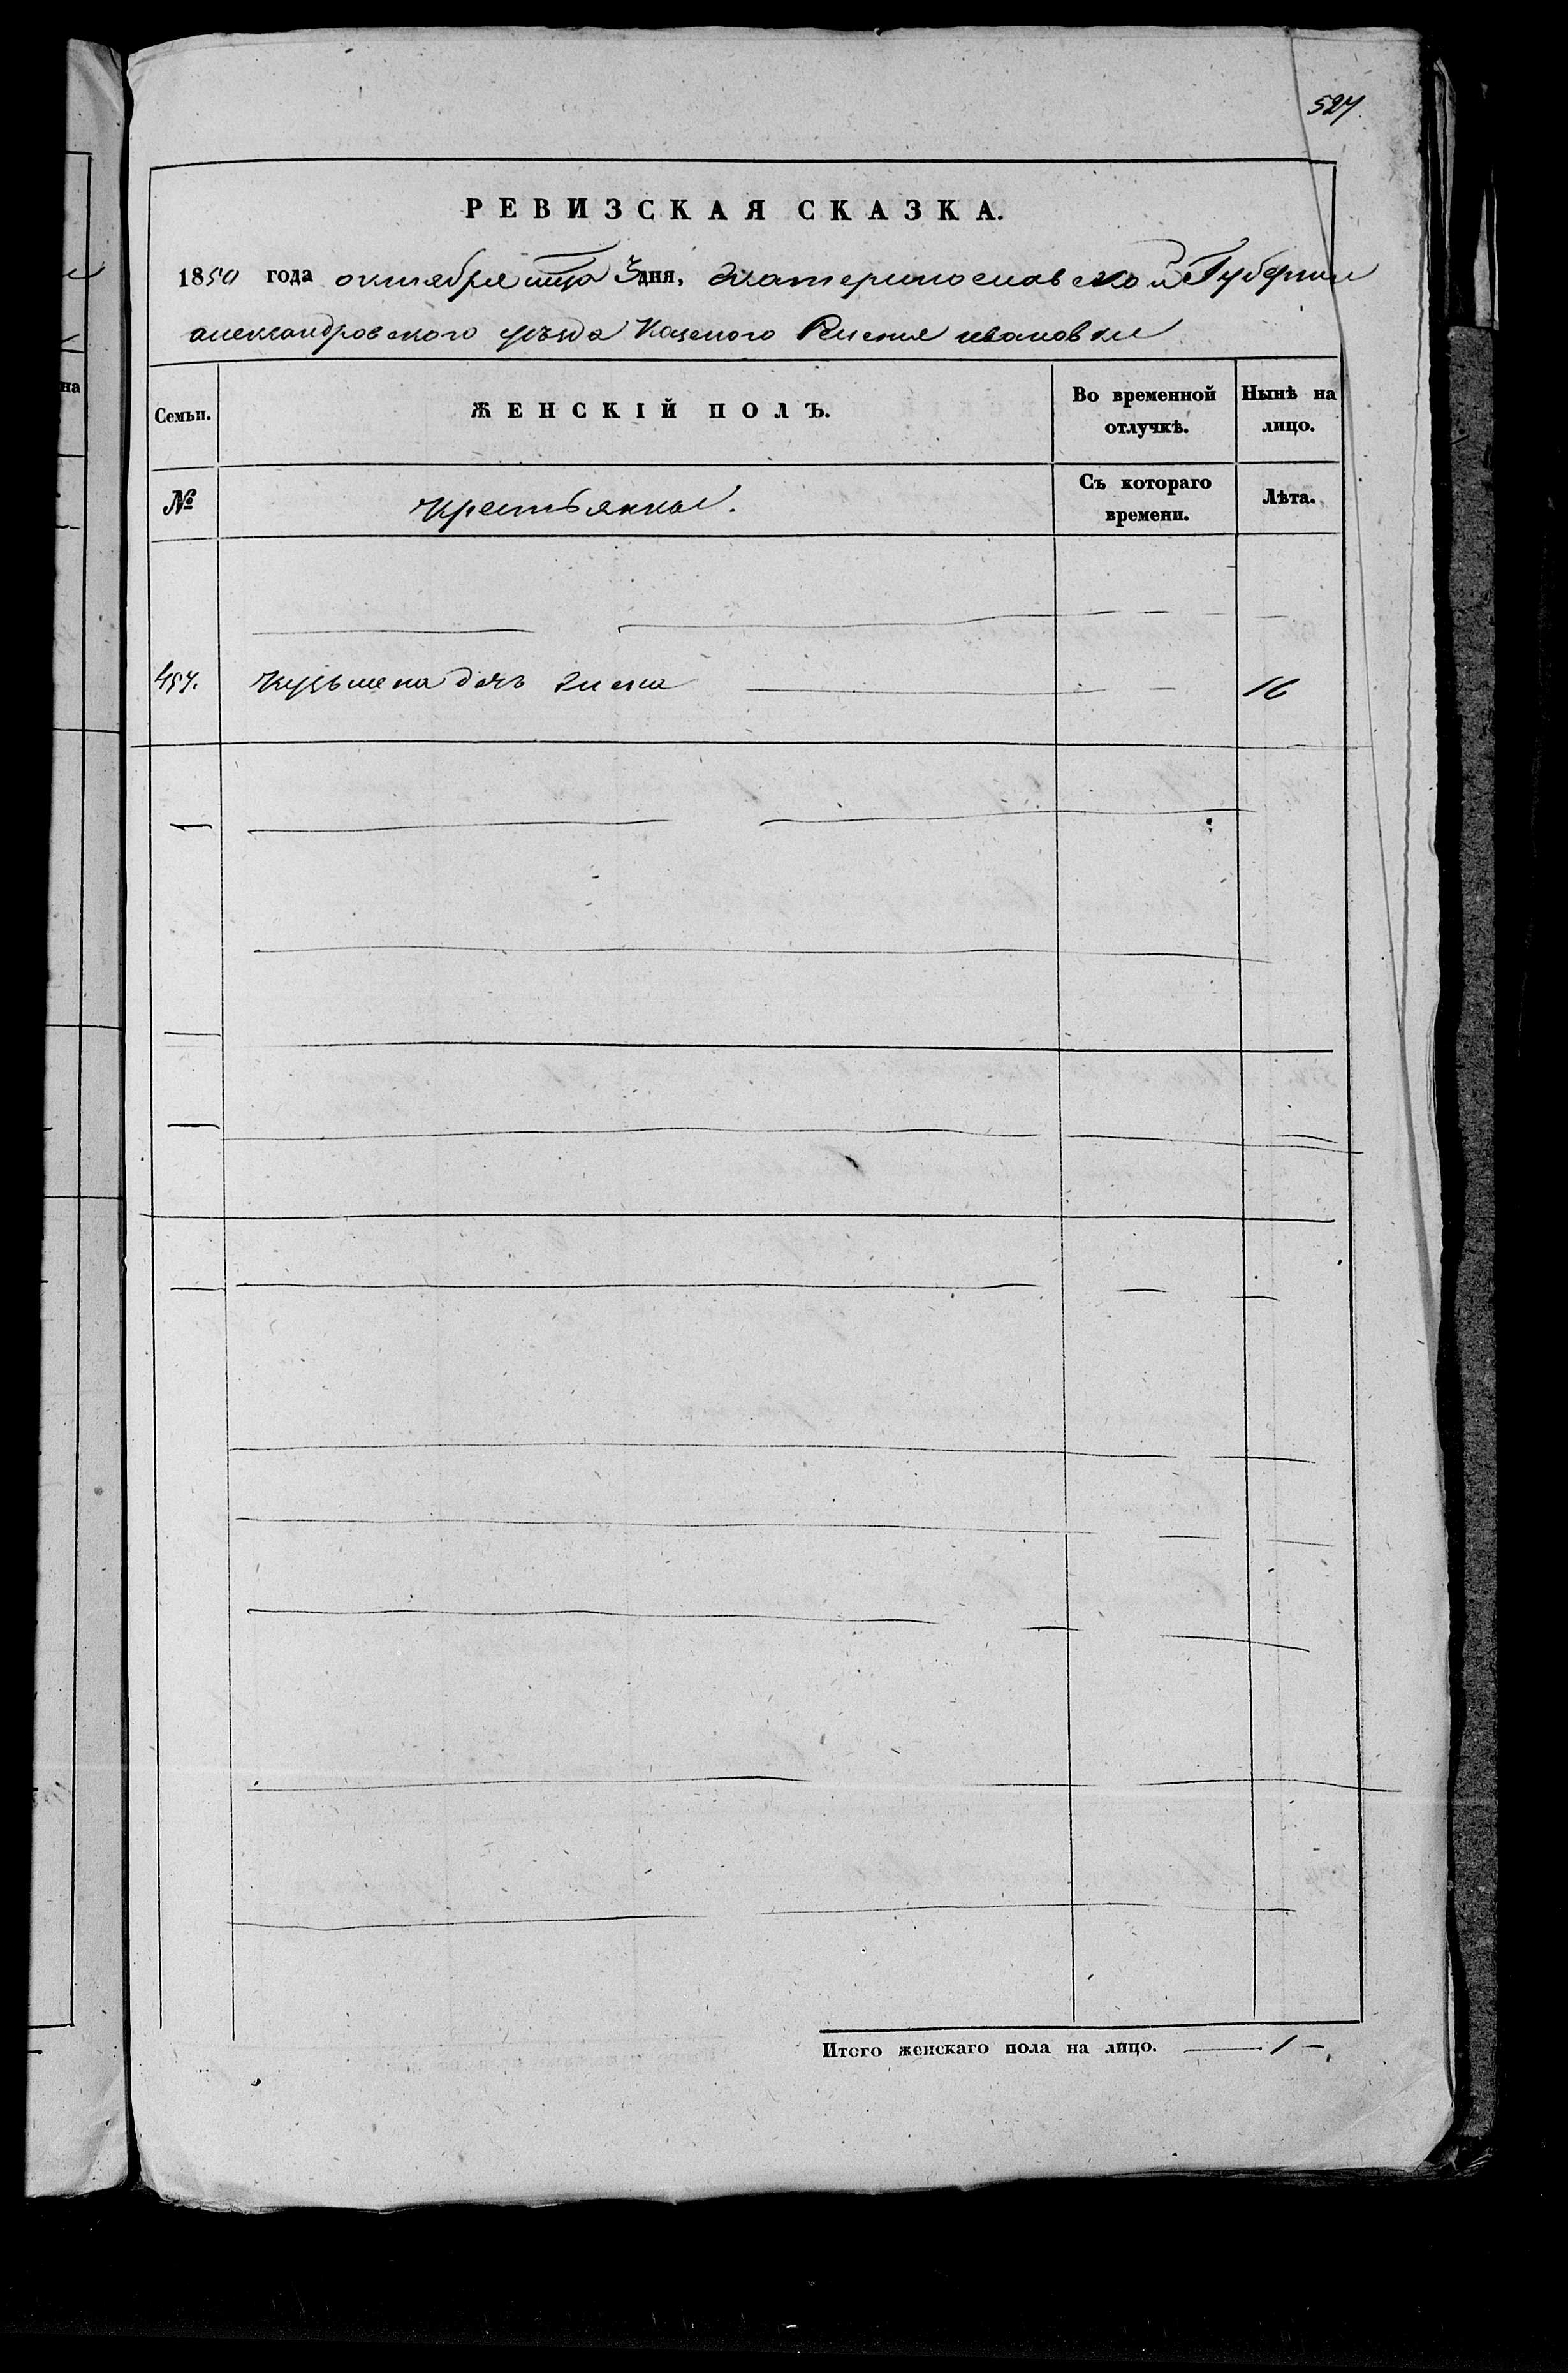 527.
РЕВИЗСКАЯ СКАЗКА.
1850 года октября мца 3 дня, Екатеринославской Губернии
александровского уезда Казеного Селения ивановки
Семьи. ЖЕНСКІЙ ПОЛЪ. Во временной отлучкѣ. Нынѣ на лицо.
№ Крестьянки. Съ котораго времени. Лѣта.
457. Кузьмена дочь 16
Итого женскаго пола на лицо. 1